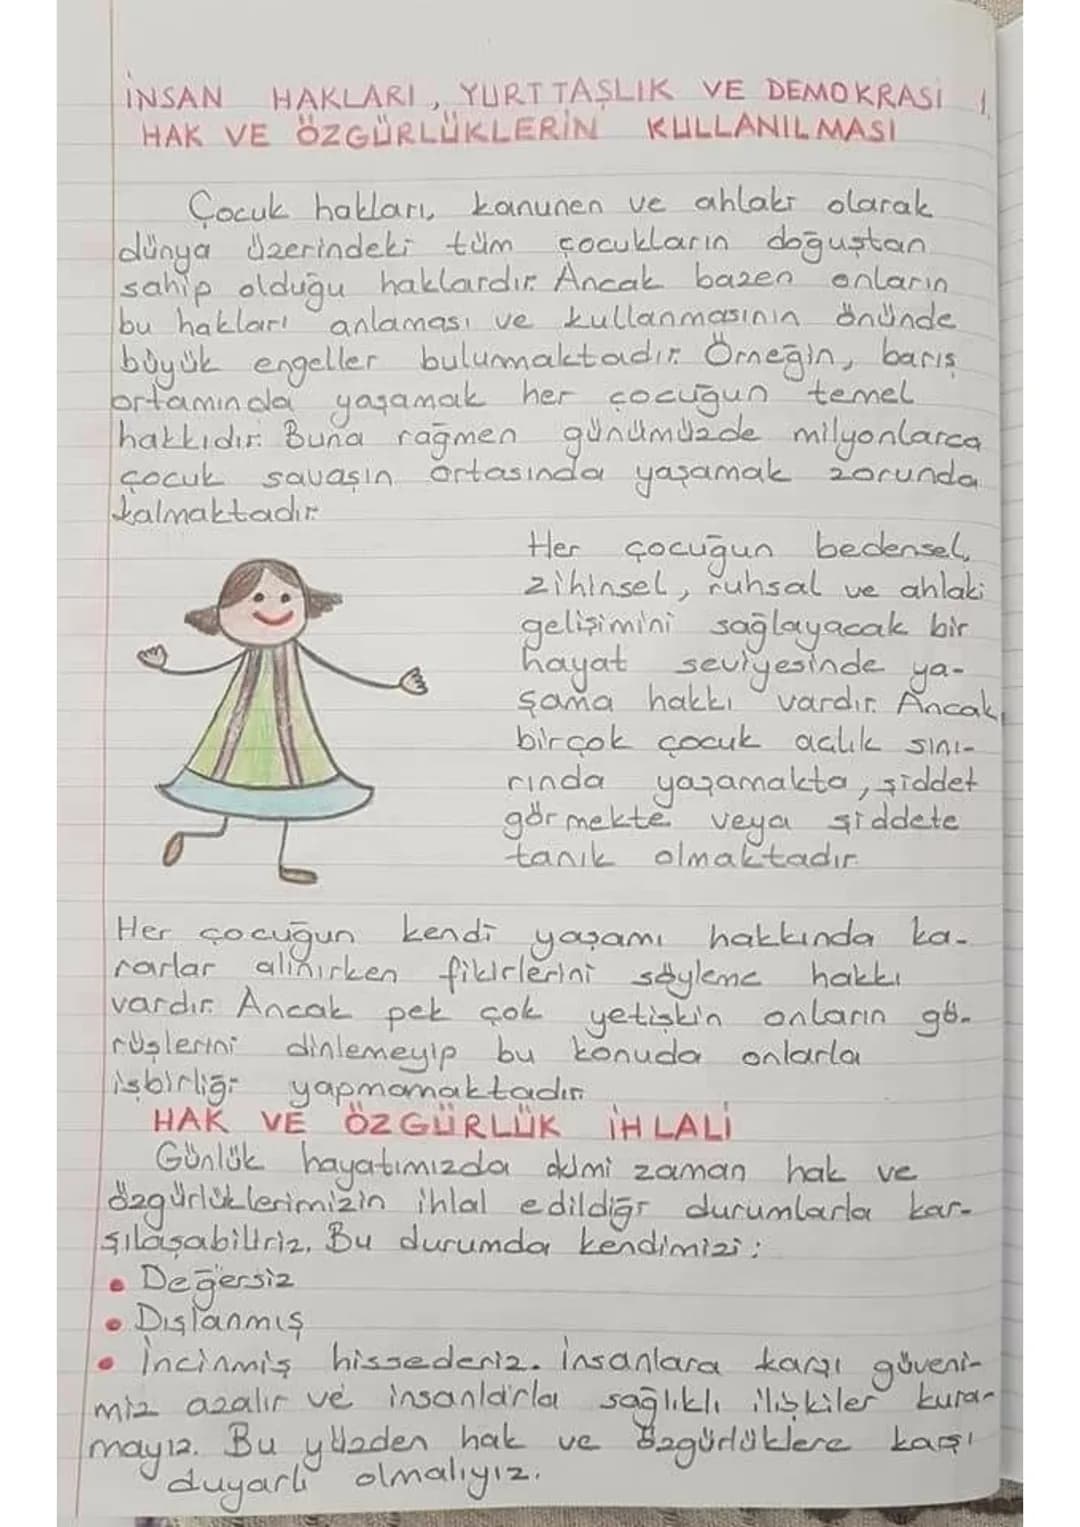 İNSAN HAKLARI, YURTTAŞLIK VE DEMOKRASİ 1.
HAK VE ÖZGÜRLÜKLERİN KULLANILMASI
Çocuk hakları, kanunen ve ahlaki olarak
dünya üzerindeki tüm çocukların doğuştan
sahip olduğu haklardır. Ancak bazen onların
bu hakları anlaması ve kullanmasının önünde
büyük engeller bulunmaktadır. Örneğin, barış
ortamında yaşamak her çocuğun temel
hakkıdır. Buna rağmen günümüzde milyonlarca
çocuk savaşın ortasında yaşamak zorunda
kalmaktadır.
Her çocuğun bedensel,
zihinsel, ruhsal ve ahlaki
gelişimini sağlayacak bir
hayat seviyesinde ya-
şama hakkı vardır. Ancak,
birçok çocuk açlık sını-
rında yaşamakta, şiddet
görmekte veya şiddete
tanık olmaktadır.
Her çocuğun kendi yaşamı hakkında ka-
rarlar alınırken fikirlerini söyleme hakkı
vardır. Ancak pek çok yetişkin onların gö-
rüşlerini dinlemeyip bu konuda onlarla
işbirliği yapmamaktadır.
HAK VE ÖZGÜRLÜK İHLALİ
Günlük hayatımızda kimi zaman hak ve
özgürlüklerimizin ihlal edildiği durumlarla kar-
şılaşabiliriz. Bu durumda kendimizi:
• Değersiz
• Dışlanmış
• İncinmiş hissederiz. İnsanlara karşı güveni-
miz azalır ve insanlarla sağlıklı ilişkiler kura-
mayız. Bu yüzden hak ve özgürlüklere karşı
duyarlı olmalıyız.